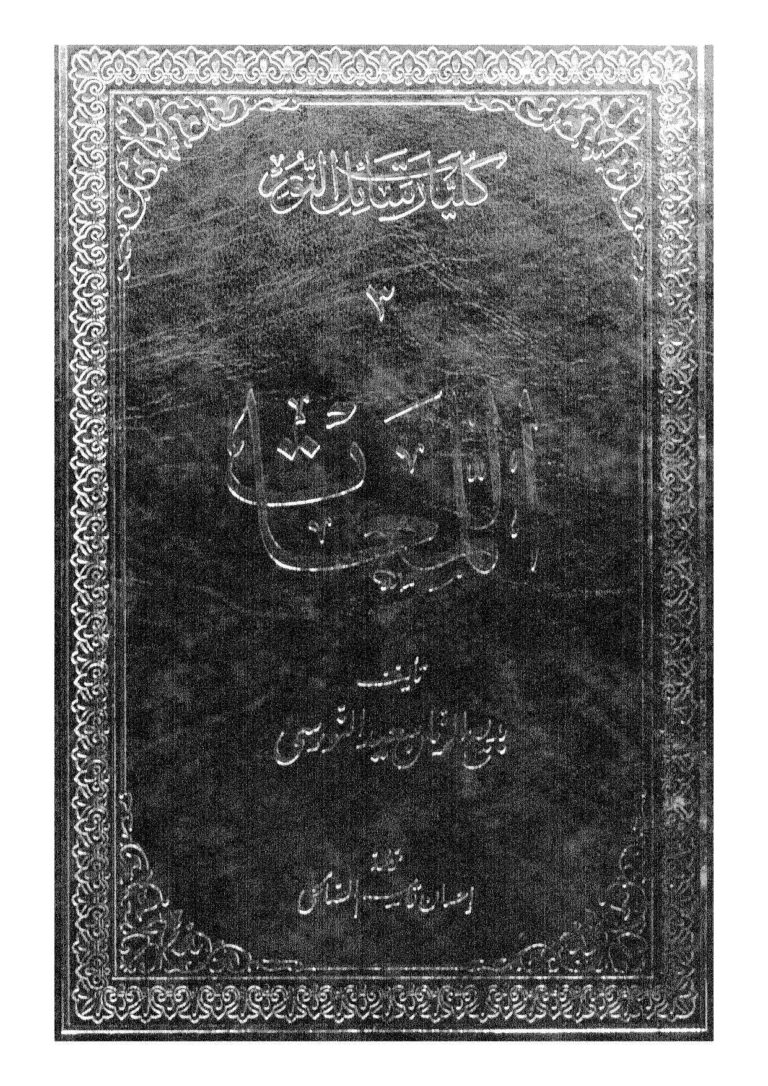 كُلِّيَّات رَسَائِلِ النُّورِ
٣
اللَّمَعَاتُ
تأليف
بديع الزمان سعيد النورسي
ترجمة
إحسان قاسم الصالحي